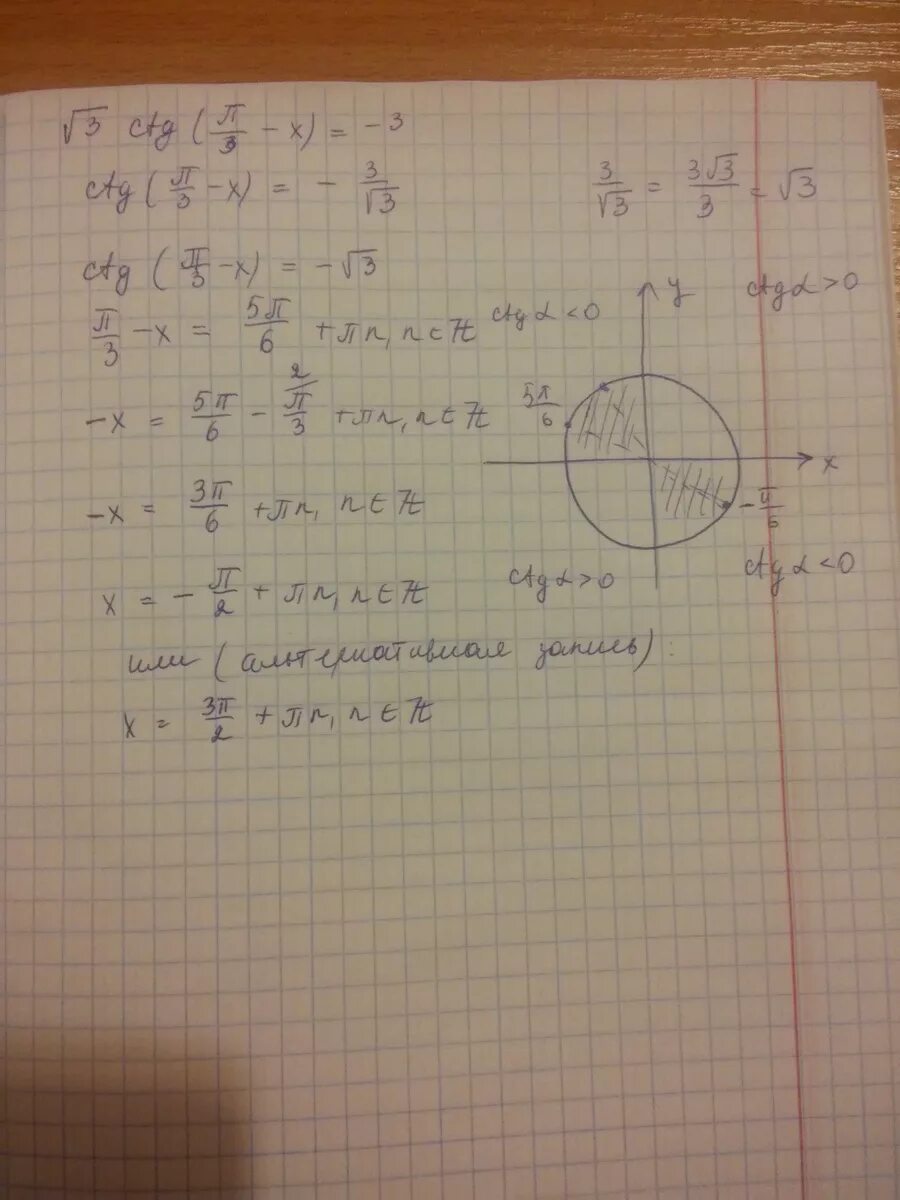 √3 ctg (π/3 − x) = −3
ctg (π/3 − x) = − 3/√3
3/√3 = 3√3/3 = √3
ctg (π/3 − x) = −√3
π/3 − x = 5π/6 + πn, n ∈ ℤ
−x = 5π/6 − π/3 2/ + πn, n ∈ ℤ
−x = 3π/6 + πn, n ∈ ℤ
x = − π/2 + πn, n ∈ ℤ
или (альтернативная запись):
x = 3π/2 + πn, n ∈ ℤ
ctg α < 0
y
ctg α > 0
5π/6
x
−π/6
ctg α > 0
ctg α < 0